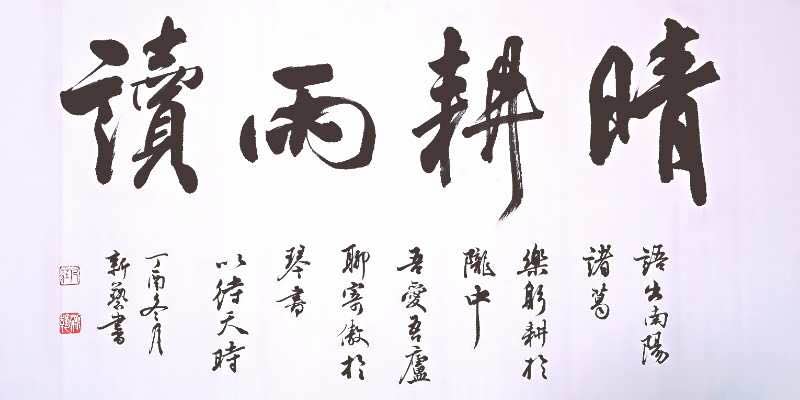 晴耕雨讀
語出南陽
諸葛
樂躬耕於
隴中
吾愛吾廬
聊寄傲於
琴書
以待天時
丁酉冬月
新藝書